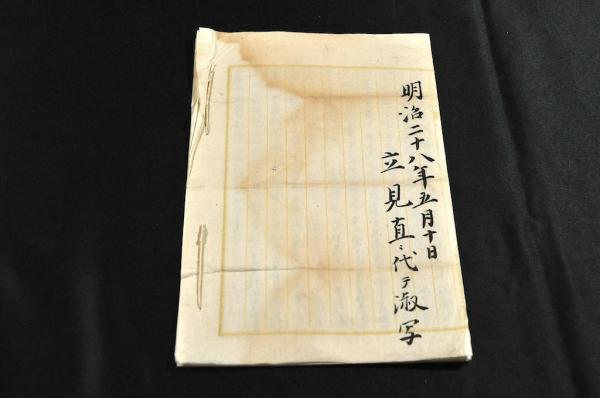 明治二十八年五月十日
立見直ニ代テ淑写